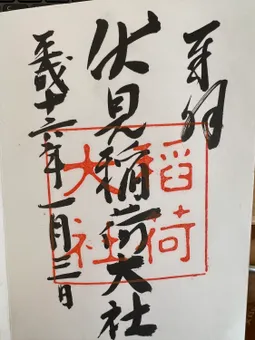 奉拝
伏見稲荷大社
稲荷
大社
平成十六年一月三日